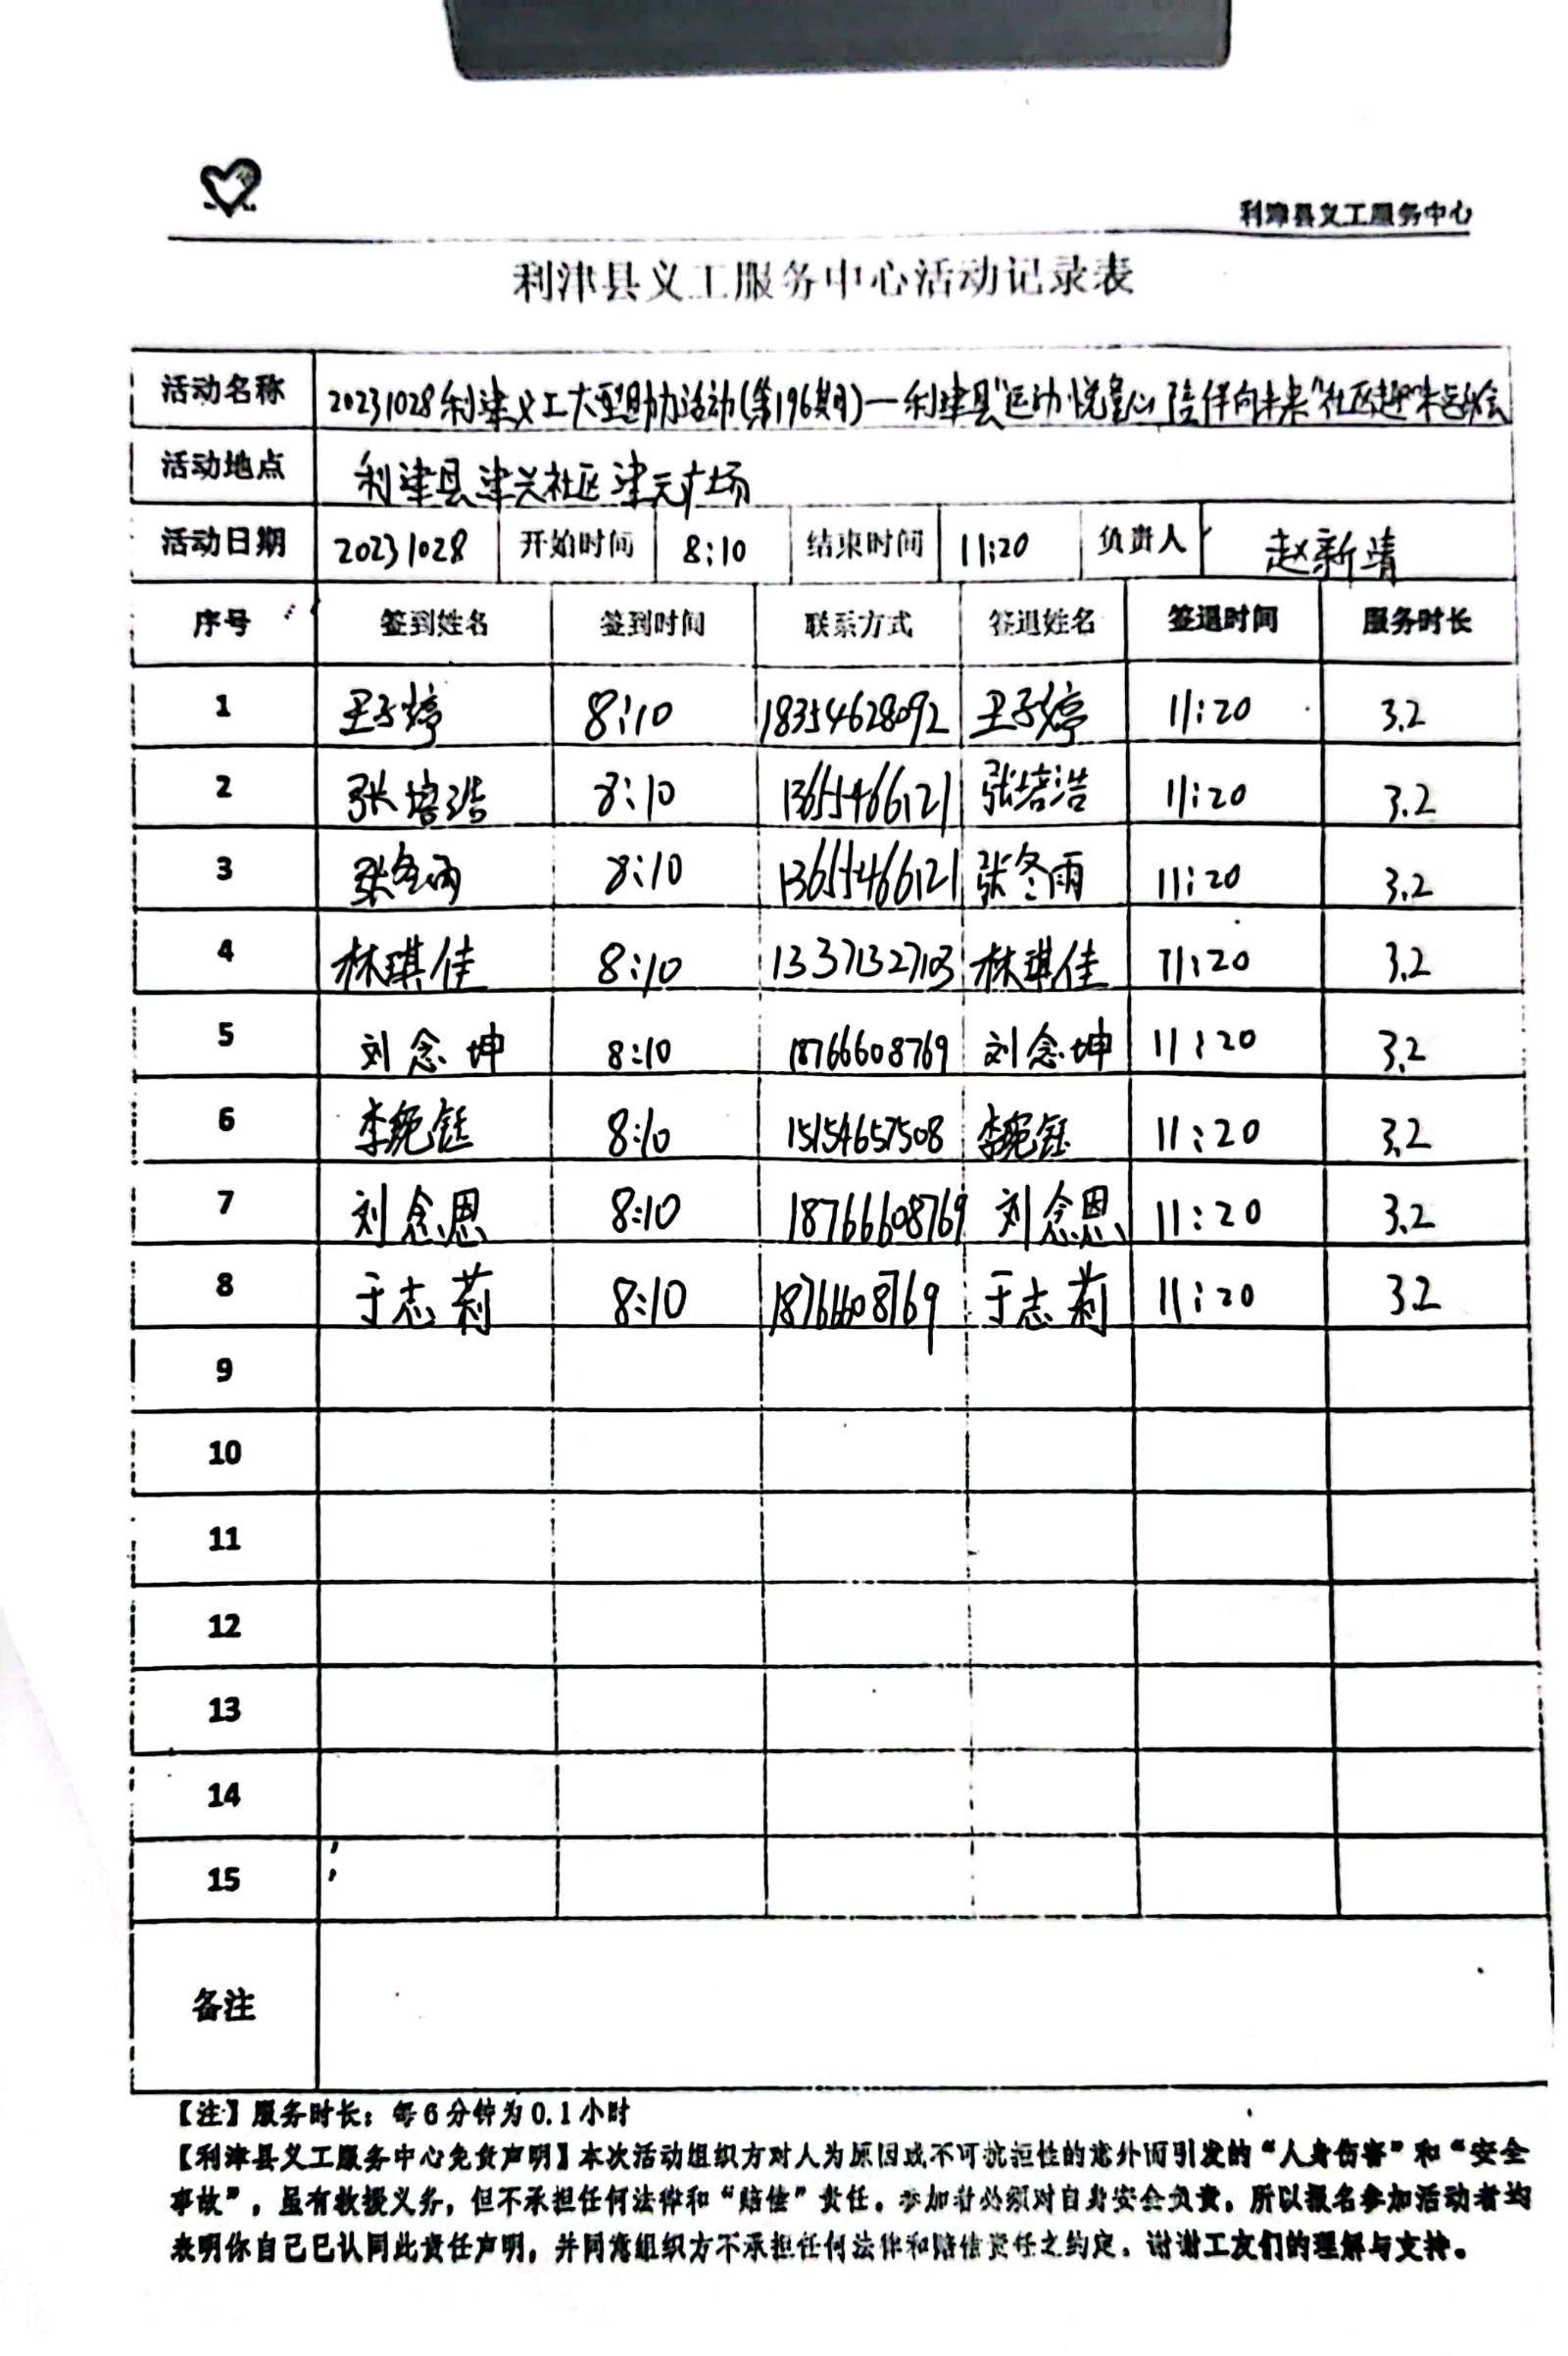 利津县义工服务中心
利津县义工服务中心活动记录表
活动名称 20231028利津义工大型助力活动(第196期)—利津县"运动悦童心 陪伴向未来"社区趣味运动会
活动地点 利津县津兴社区津元广场
活动日期 20231028 开始时间 8:10 结束时间 11:20 负责人 赵新靖
序号 签到姓名 签到时间 联系方式 签退姓名 签退时间 服务时长
1 王子婷 8:10 18354628092 王子婷 11:20 3.2
2 张培浩 8:10 13655466121 张培浩 11:20 3.2
3 张冬雨 8:10 13655466121 张冬雨 11:20 3.2
4 林琪佳 8:10 13371327103 林琪佳 11:20 3.2
5 刘念坤 8:10 18766608769 刘念坤 11:20 3.2
6 李婉钰 8:10 15154657508 李婉钰 11:20 3.2
7 刘念恩 8:10 18766608769 刘念恩 11:20 3.2
8 于志莉 8:10 18766608769 于志莉 11:20 3.2
9
10
11
12
13
14
15
备注
【注】服务时长：每6分钟为0.1小时
【利津县义工服务中心免责声明】本次活动组织方对人为原因或不可抗拒性的意外而引发的“人身伤害”和“安全
事故”，虽有救援义务，但不承担任何法律和“赔偿”责任。参加者必须对自身安全负责，所以报名参加活动者均
表明你自己已认同此责任声明，并同意组织方不承担任何法律和赔偿责任之约定。谢谢工友们的理解与支持。